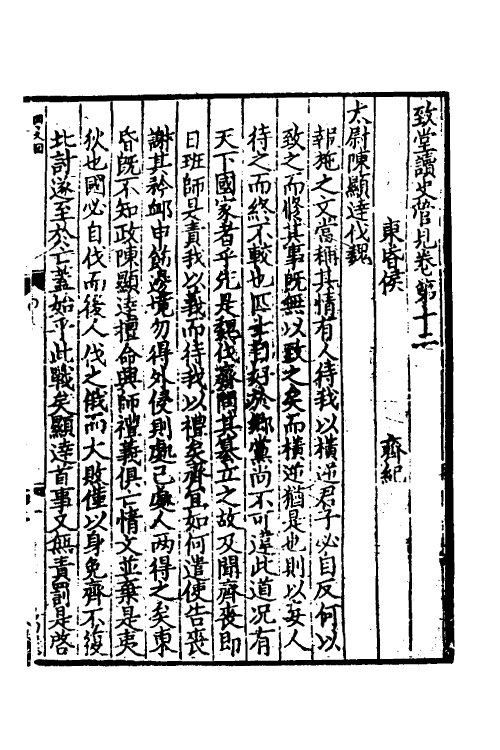 致堂讀史管見卷第十二
東昏侯 齊紀
太尉陳顯達伐魏
報施之文當稱其情有人待我以橫逆君子必自反何以
致之而脩其事既無以致之矣而橫逆猶是也則以妄人
待之而終不較也匹士自好流鄉黨尚不可違此道况有
天下國家者乎先是魏伐齊問其纂立之故及聞齊喪即
日班師是責我以義而待我以禮矣齊宜如何遣使告喪
謝其矜䘏申飭邊境勿得外侵則處己處人两得之矣東
昏既不知政陳顯達擅命興師禮義俱亡情文並棄是夷
狄也國必自伐而後人伐之俄而大敗僅以身免齊不復
北討遂至於亡蓋始乎此戰矣顯達首事又無責罰是啓